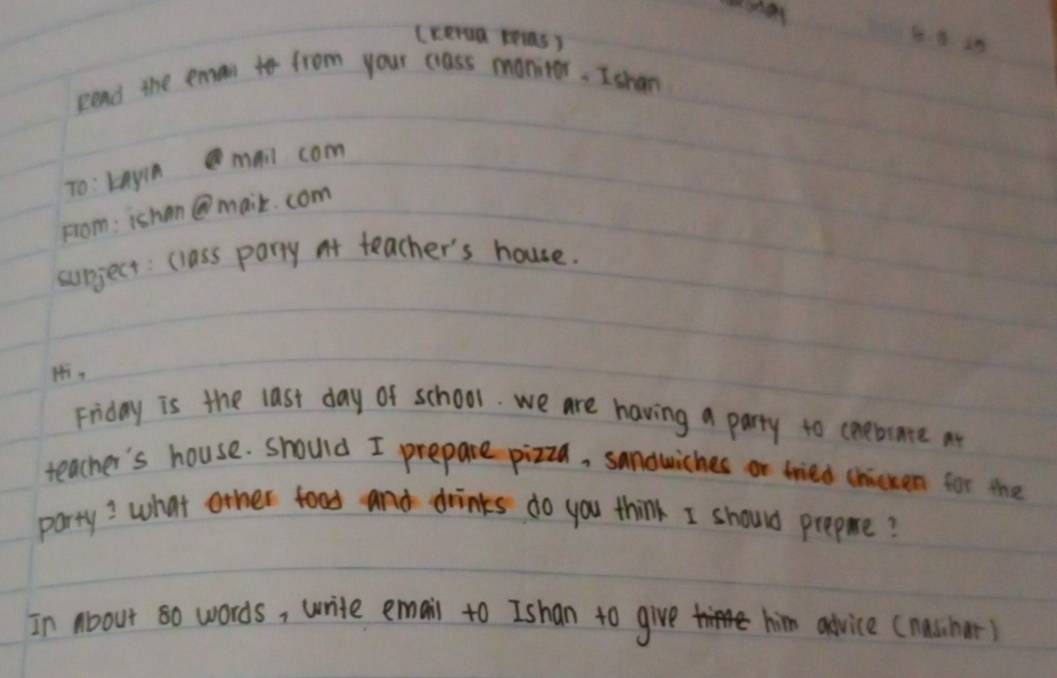 (Ketua kelas)
Read the email to from your class monitor. Ishan
To: kayin @mail com
From: ishan@mail.com
Subject: Class party at teacher's house.
Hi,
Friday is the last day of school. We are having a party to celebrate at
teacher's house. Should I prepare pizza, sandwiches or fried chicken for the
party? What other food and drinks do you think I should prepare?
In about 80 words, write email to Ishan to give time him advice (nasihat)